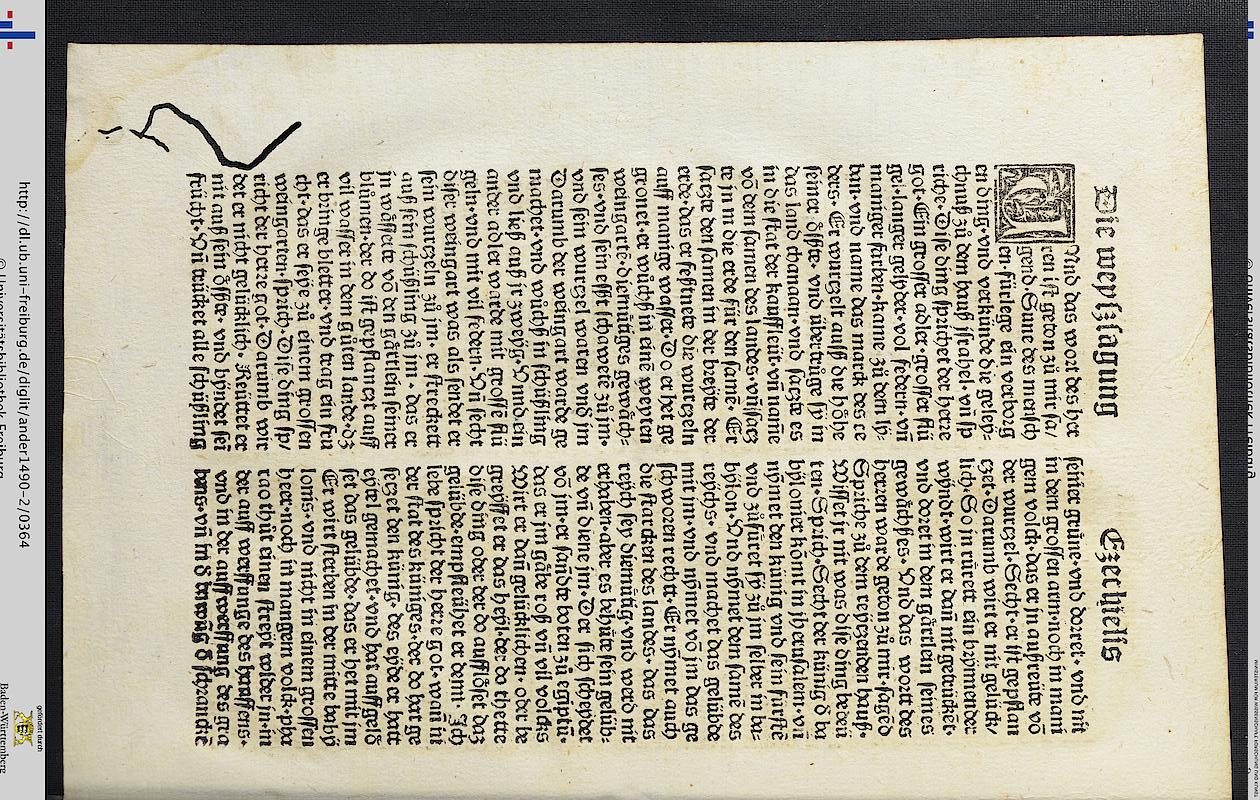 Die weyſzſagung
Ezechielis
Vnd das wort des her
ren iſt geton zů mir ſa/
gend. Sune des menſch
en fürlege ein verborg
en ding. vnd verkünde die geley=
chnuß zů dem hauß iſrahel. vnd ſp
riche. Diſe ding ſprichet der herre
got. Ein groſſer adler groſſer flü
gel. langer gelyder. vol federn. vñ
maniger farben. kame zů dem ly=
ban. vnd name das marck des ce
ders. Er wurtzelt auß die höhe
ſeiner öſſte. vnd übertrůge ſy in
das land chanaan. vnd ſatzte es
in die ſtat der kauffleüt. vñ name
vō dem ſamen des landes. vñ ſatz
te jn in die erde für den ſamē. Er
ſatzte den ſamen in der breyte der
erde. das er feſtnete die wurtzeln
auff manige waſſer. Do er het ge
gronet. er wůchß in einē weyten
weingartē. diemütiges gewäch=
ſes. vnd ſein eſſte ſchawetē zů jm.
vnd ſein wurtzel waren vnd jm
Darumb der weingart warde ge
machet. vnd wůchß in ſchüßling
vnd ließ auß jr zweyg. Vnd ein
ander adler warde mit groſſē flü
geln. vnd mit vil federn. Vñ ſecht
diſer weingart was als ſendet er
ſein wurtzeln zů jm. er ſtreckett
auß ſein ſchüßling zů jm. das er
jn wäſſerte vō den gärtlein ſeiner
blůmen. der do iſt gepflantzt auff
vil waſſer in dem gůten lande. dz
er bringe bletter. vnd trag ein fru
cht. das er ſeye zů einem groſſen
weingarten. ſprich. Diſe ding ſp/
richt der herre got. Darumb wir
der er nicht gelücklich. Reüttet er
nit auß ſein öſſte. vnd byndet ſei
früchte. Vñ trücket alle ſchüßling
ſeiner grüne. vnd dorret. vnd nit
in dem groſſen arm. noch in mani
gem volck. das er jn außreüte vō
der wurtzel. Secht. er iſt gepflan
tzet. Darumb wirt er nit gelück/
lich. So in rüret ein brynnender
wyndt. wirt er dañ nit getrücket.
vnd dorret in dem gärtlein ſeines
gewächſes. Vnd das wort des
herren warde geton zů mir. ſagēd
Spriche zů dem reytzenden hauß.
Wiſſet jr nit was diſe ding bedeü
ten. Sprich. Secht der künig ð ba
bylonier kōmt in jheruſalem. vñ
nymet den künig vnd ſein fürſtē
vnd zůfüret ſy zů jm ſelber in ba=
bylon. Vnd nymet den ſamē des
reychs. vnd machet das gelübde
mit jm. vnd nymet vō jm das ge
ſchworen recht. Er nymet auch
die ſtarcken des landes. das das
reich ſey diemütig. vnd werd nit
erhaben. aber es behüte ſein gelüb=
de vñ diene jm. Der er ſich ſcheydet
vō jm. er ſandte boten zů egiptū.
das er jm gäbe roß vñ vil volcks
Wirt er dañ gelücklichen. oder be
greyffet er das heyl. der do thette
diſe ding oder der do aufflöſet daz
gelübde. empfleühet er denn. Jch
lebe ſpricht der herre got. weñ in
der ſtat des küniges. der do hat ge
ſetzet den künig. des eyde er hatt
eytel gemachet. vnd hat auffgelö
ſet das gelübde. das er het mit jm
Er wirt ſterben in der mitte baby
lonis. vnd nicht in einem groſſen
heer. noch in mangem volck. pha
rao thůt einen ſtreyt wider jn. in
der auff werffunge des
vnd in der auffwerffung des gra
bens. vñ in ð ð ſchranckē
http://dl.ub.uni-freiburg.de/diglit/ander1490-2/0364
© Universitätsbibliothek Freiburg
gefördert durch
Baden-Württemberg